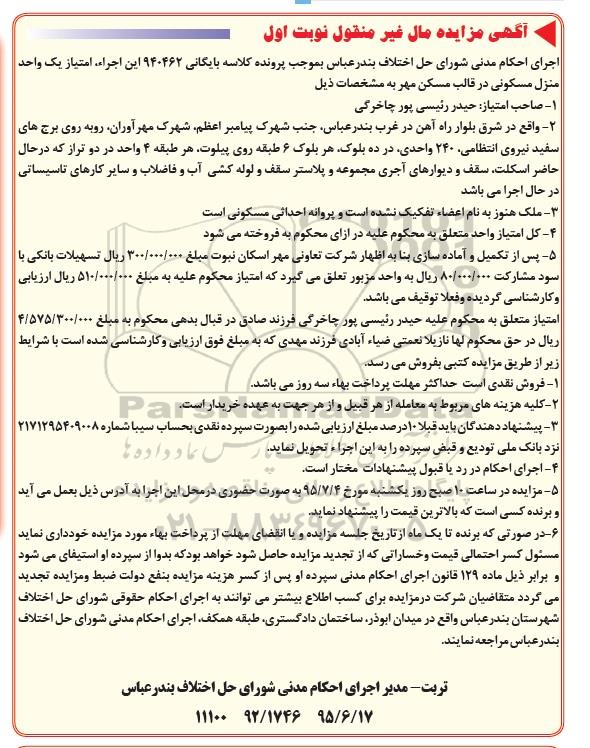 آگهی مزایده مال غیر منقول نوبت اول
اجرای احکام مدنی شورای حل اختلاف بندرعباس بموجب پرونده کلاسه بایگانی ۹۴۰۴۶۲ این اجراء، امتیاز یک واحد
منزل مسکونی در قالب مسکن مهر به مشخصات ذیل
۱- صاحب امتیاز: حیدر رئیسی پور چاخرگی
۲- واقع در شرق بلوار راه آهن در غرب بندرعباس، جنب شهرک پیامبر اعظم، شهرک مهرآوران، روبه روی برج های
سفید نیروی انتظامی، ۲۴۰ واحدی، در ده بلوک، هر بلوک ۶ طبقه روی پیلوت، هر طبقه ۴ واحد در دو تراز که درحال
حاضر اسکلت، سقف و دیوارهای آجری مجموعه و پلاستر سقف و لوله کشی آب و فاضلاب و سایر کارهای تاسیساتی
در حال اجرا می باشد
۳- ملک هنوز به نام اعضاء تفکیک نشده است و پروانه احداثی مسکونی است
۴- کل امتیاز واحد متعلق به محکوم علیه در ازای محکوم به فروخته می شود
۵- پس از تکمیل و آماده سازی بنا به اظهار شرکت تعاونی مهر اسکان نبوت مبلغ ۳۰۰/۰۰۰/۰۰۰ ریال تسهیلات بانکی با
سود مشارکت ۸۰/۰۰۰/۰۰۰ ریال به واحد مزبور تعلق می گیرد که امتیاز محکوم علیه به مبلغ ۵۱۰/۰۰۰/۰۰۰ ریال ارزیابی
وکارشناسی گردیده وفعلا توقیف می باشد.
امتیاز متعلق به محکوم علیه حیدر رئیسی پور چاخرگی فرزند صادق در قبال بدهی محکوم به مبلغ ۴/۵۷۵/۳۰۰/۰۰۰
ریال در حق محکوم لها نازیلا نعمتی ضیاء آبادی فرزند مهدی که به مبلغ فوق ارزیابی وکارشناسی شده است با شرایط
زیر از طریق مزایده کتبی بفروش می رسد.
۱- فروش نقدی است حداکثر مهلت پرداخت بهاء سه روز می باشد.
۲-کلیه هزینه های مربوط به معامله از هر قبیل و از هر جهت به عهده خریدار است.
۳- پیشنهاد دهندگان باید قبلا ۱۰درصد مبلغ ارزیابی شده را بصورت سپرده نقدی بحساب سیبا شماره ۲۱۷۱۲۹۵۴۰۹۰۰۸
نزد بانک ملی تودیع و قبض سپرده را به این اجراء تحویل نماید.
۴- اجرای احکام در رد یا قبول پیشنهادات مختار است.
۵- مزایده در ساعت ۱۰صبح روز یکشنبه مورخ ۹۵/۷/۴ به صورت حضوری درمحل این اجرا به آدرس ذیل بعمل می آید
و برنده کسی است که بالاترین قیمت را پیشنهاد نماید.
۶-در صورتی که برنده تا یک ماه از تاریخ جلسه مزایده و یا انقضای مهلت از پرداخت بهاء مورد مزایده خودداری نماید
مسئول کسر احتمالی قیمت وخساراتی که از تجدید مزایده حاصل شود خواهد بودکه بدوا از سپرده او استیفای می شود
و برابر ذیل ماده ۱۲۹ قانون اجرای احکام مدنی سپرده او پس از کسر هزینه مزایده بنفع دولت ضبط ومزایده تجدید
می گردد متقاضیان شرکت درمزایده برای کسب اطلاع بیشتر می توانند به اجرای احکام حقوقی شورای حل اختلاف
شهرستان بندرعباس واقع در میدان ابوذر، ساختمان دادگستری، طبقه همکف، اجرای احکام مدنی شورای حل اختلاف
بندرعباس مراجعه نمایند.
تربت- مدیر اجرای احکام مدنی شورای حل اختلاف بندرعباس
۹۵/۶/۱۷ ۹۲/۱۷۴۶ ۱۱۱۰۰
ParsNamadData
۰۲۱-۸۸۳۴۹۶۷۰-۵